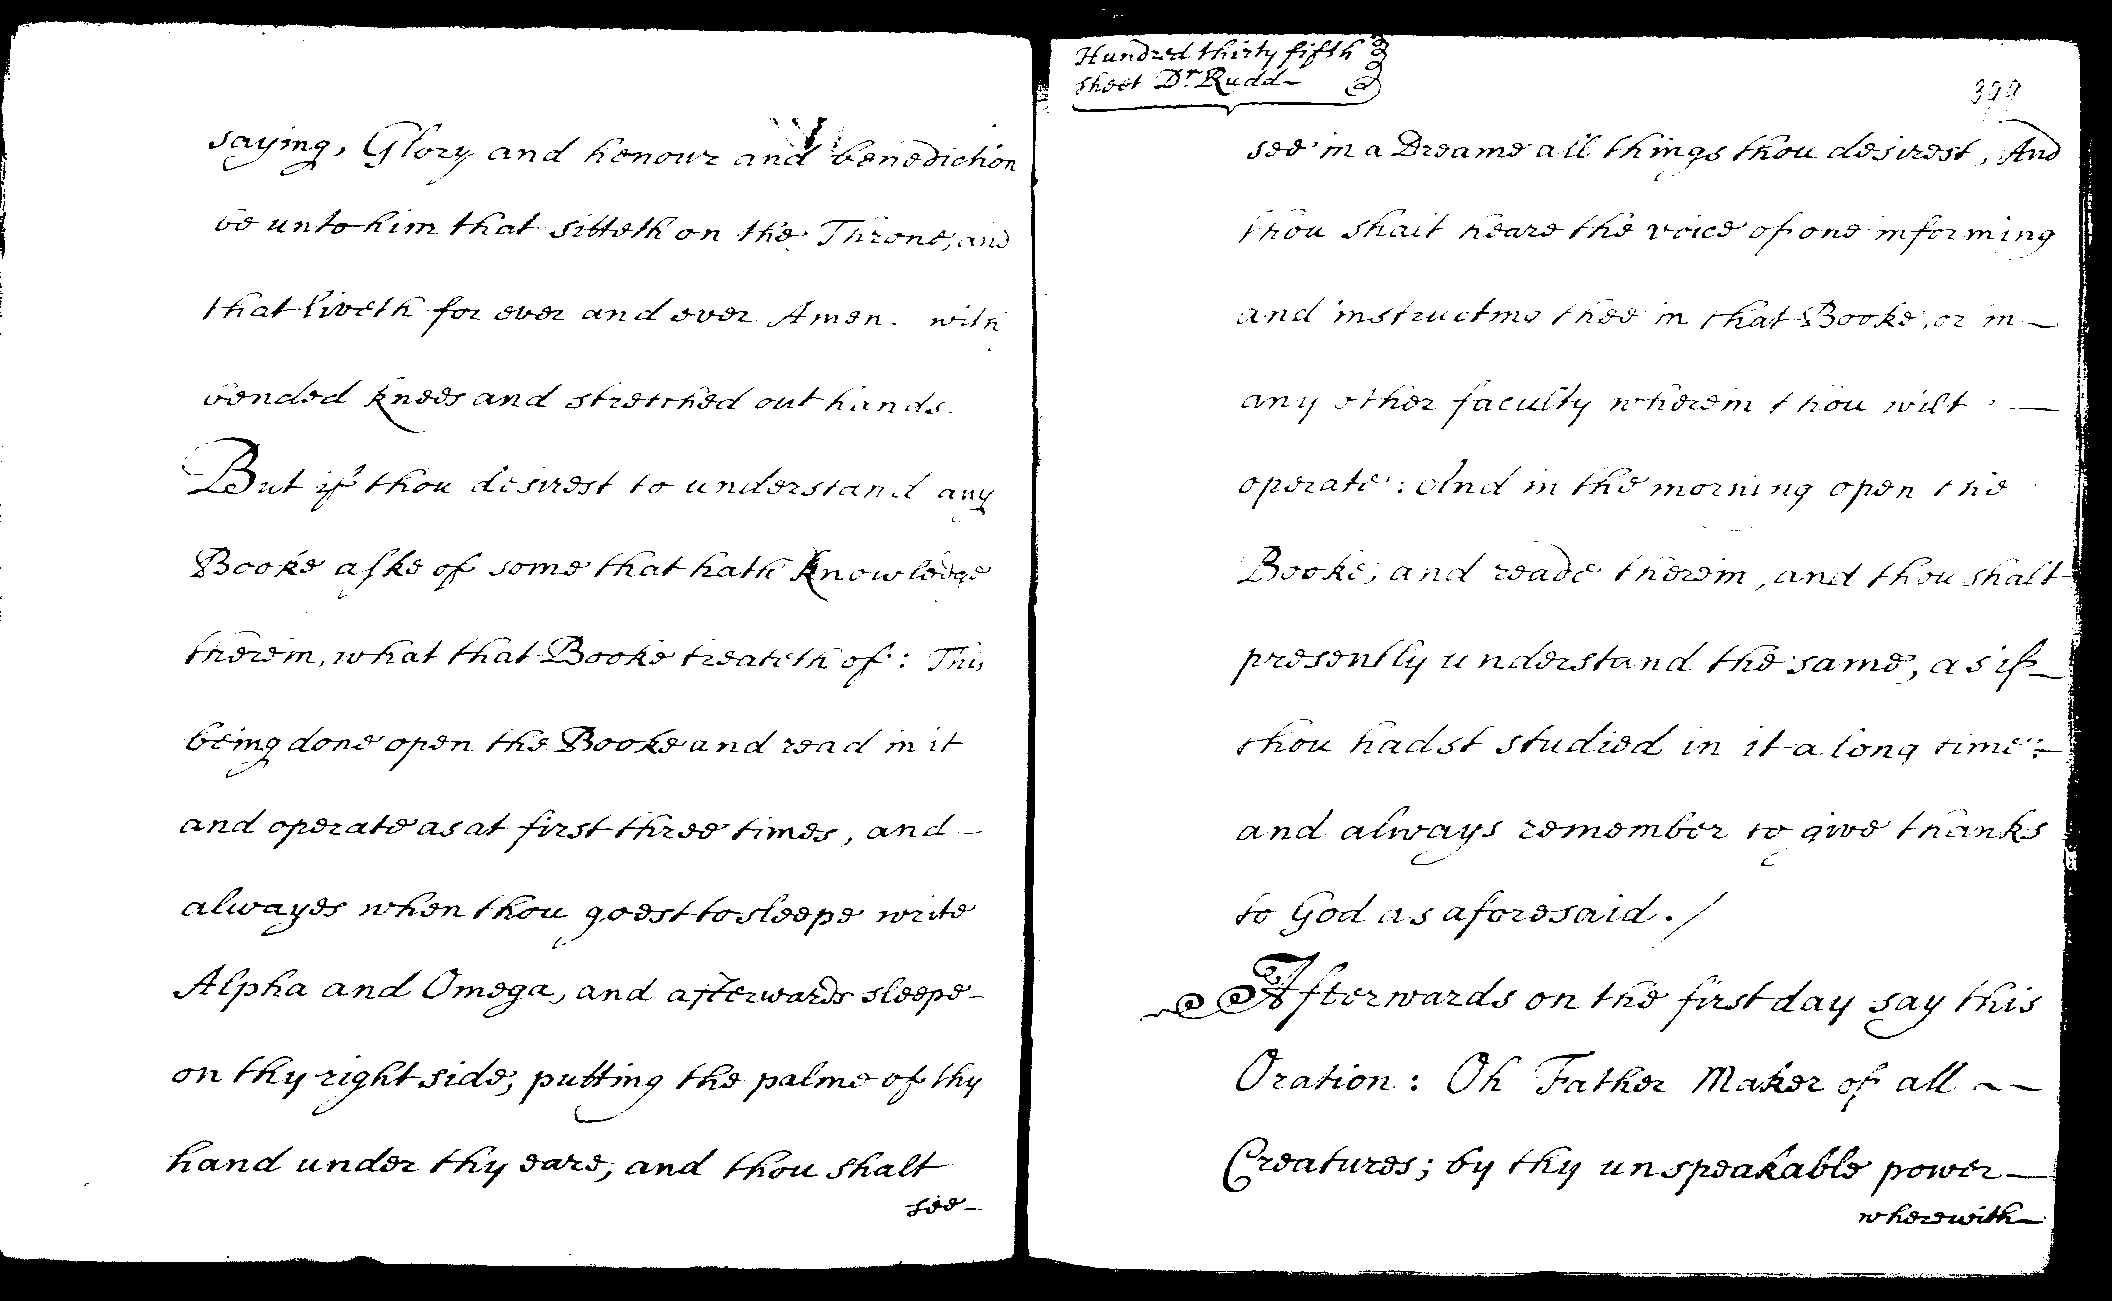 saying, Glory and honour and benediction
be unto him that sitteth on the Throne, and
that liveth for ever and ever Amen. with
bended knees and stretched out hands.
But if thou desirest to understand any
Booke aske of some that hath knowledge
therein, what that Booke treateth of: This
being done open the Booke and read in it
and operate as at first three times, and –
alwayes when thou goest to sleepe write
Alpha and Omega, and afterwards sleepe –
on thy right side, putting the palme of thy
hand under thy eare, and thou shalt
see –
Hundred thirty fifth
sheet Dr Rudd –
399
see in a Dreame all things thou desirest, And
thou shalt heare the voice of one informing
and instructing thee in that Booke, or in –
any other faculty wherein thou wilt –
operate: And in the morning open the
Booke, and reade therein, and thou shalt
presently understand the same, as if –
thou hadst studied in it a long time: –
and always remember to give thanks
to God as aforesaid./
Afterwards on the first day say this
Oration: Oh Father Maker of all ~ ~
Creatures; by thy unspeakable power –
wherewith –